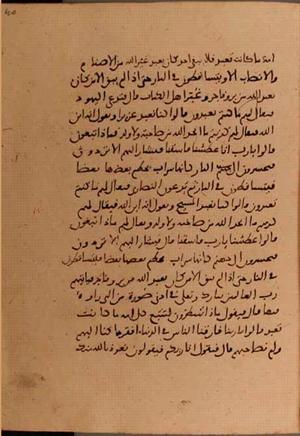 امة ما كانت تعبد فلا يبقى احد كان يعبد غير الله من الاصنام
والانصاب الا يتساقطون في النار حتى اذا لم يبق الا من كان
يعبد الله من بر وفاجر وغبر اهل الكتاب فيدعى اليهود
فيقال لهم ما كنتم تعبدون قالوا كنا نعبد عزير بن الله
فيقال كذبتم ما اتخذ الله من صاحبة ولا ولد فماذا تبغون
قالوا يا رب انا عطشنا فاسقنا فيشار اليهم الا تردون
فيحشرون الى جهنم النار كانها سراب يحطم بعضها بعضا
فيتساقطون في النار ثم يدعون النصارى فيقال لهم ما كنتم
تعبدون قالوا كنا نعبد المسيح بن الله فيقال لهم
كذبتم ما اتخذ الله من صاحبة ولا ولد فيقال لهم ماذا تبغون
قالوا عطشنا يا رب فاسقنا قال فيشار اليهم الا تردون
فيحشرون الى جهنم كانها سراب يحطم بعضها بعضا فيتساقطون
في النار حتى اذا لم يبق الا من كان يعبد الله من بر وفاجر اتاهم
رب العالمين تبارك وتعالى في ادنى صورة من التي راوه
فيها قال فيقول ماذا تنتظرون لتتبع كل امة ما كانت
تعبد قالوا يا ربنا فارقنا الناس في الدنيا افقر ما كنا اليهم
ولم نصاحبهم قال فيقول انا ربكم فيقولون نعوذ بالله منك